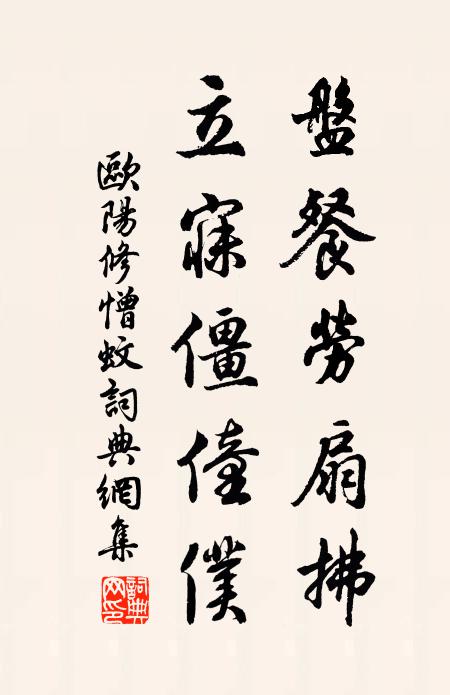 盤餐勞扇拂
立寐僵僮僕
歐陽修憎蚊詞典網集
詞典網印